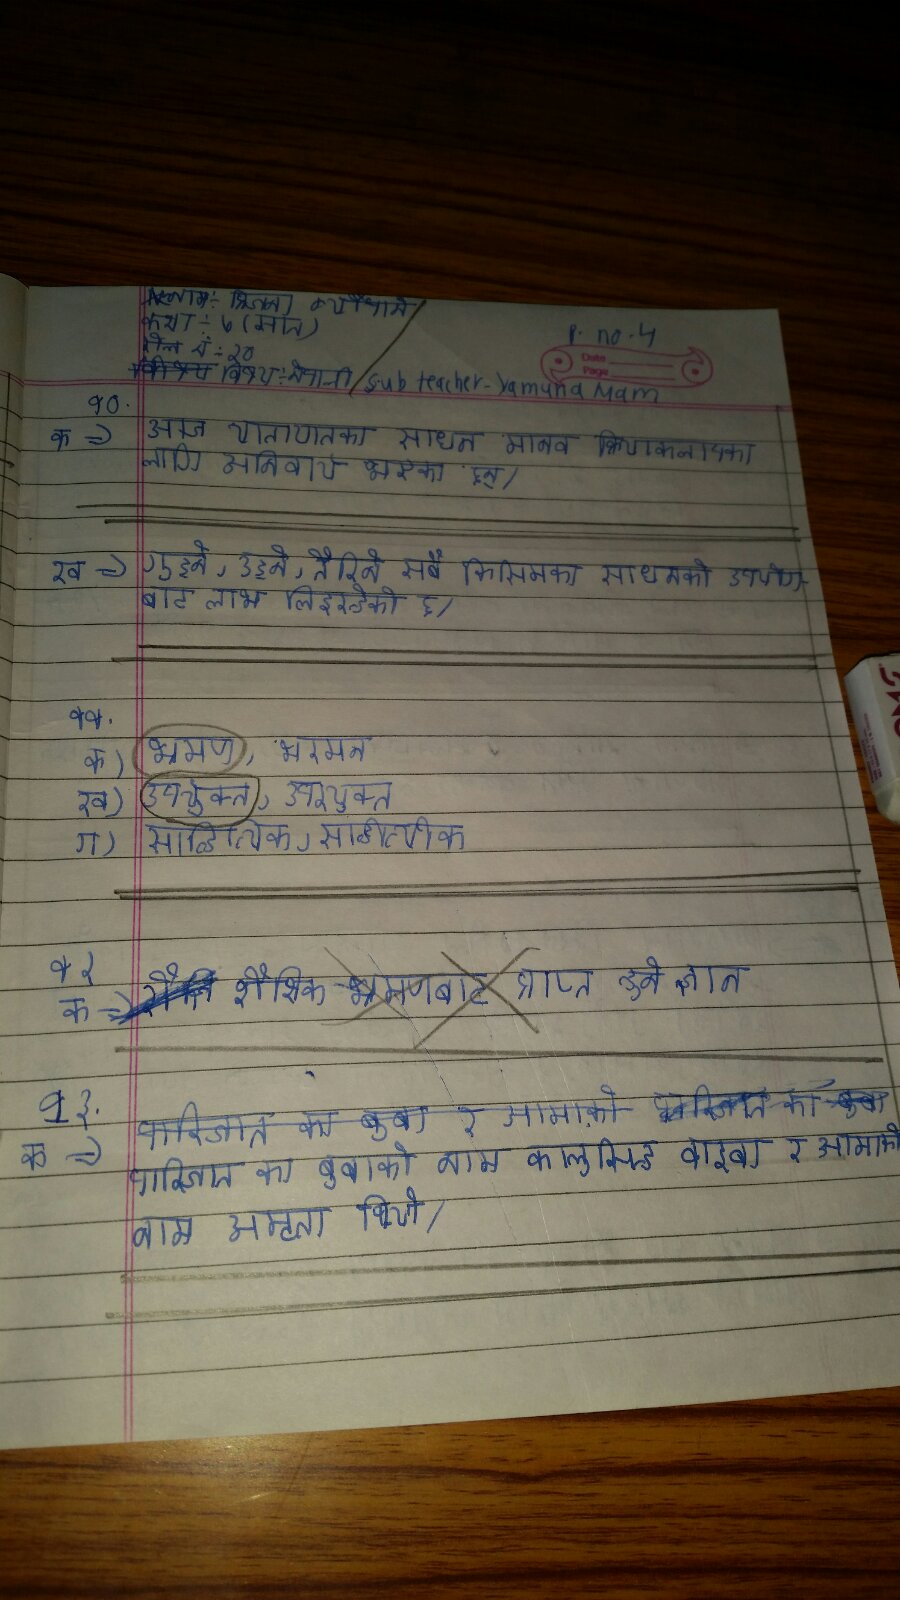 नाम:-
कक्षा:- ७ (सात)
रोल नं:- २०
विषय:- नेपाली sub teacher - Yamuna Mam
P. no. 4
Date
Page
१०.
क ⇒ आज यातायातका साधन मानव क्रियाकलापका
लागि अनिवार्य भएका छन्।
ख ⇒ गुड्ने, उड्ने, तैरिने सबै किसिमका साधनको उपयोग
बाट लाभ लिइरहेको छ।
११.
क) भ्रमण, भरमन
ख) उपयुक्त, उपरयुक्त
ग) साहित्यिक, साहीत्यीक
१२
क ⇒ शैक्षिक भ्रमणबाट प्राप्त हुने ज्ञान
१३.
पारिजात का बुबा र आमाको पारिजात का बुबा
क ⇒ पारिजात का बुबाको नाम कालुसिङ वाइबा र आमाको
नाम अमृता थियो।